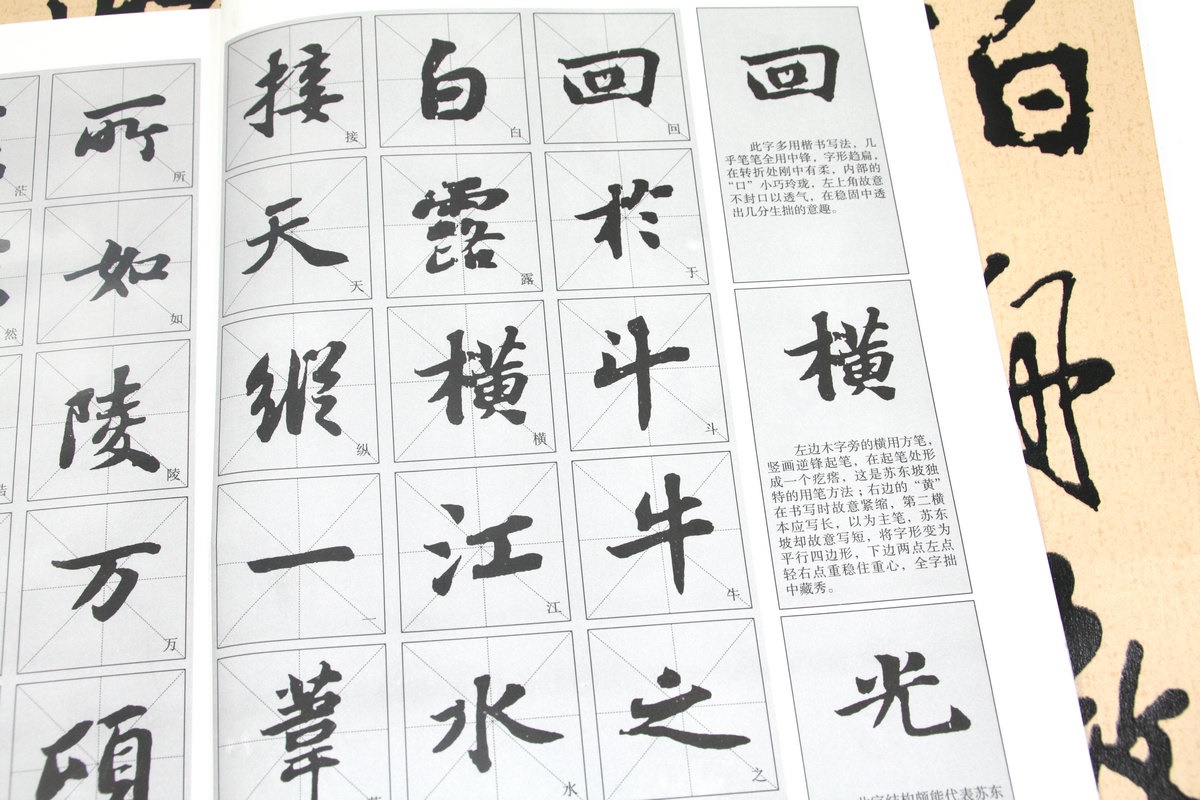 回
此字多用楷书写法，几
乎笔笔全用中锋，字形趋扁，
在转折处刚中有柔，内部的
“口”小巧玲珑，左上角故意
不封口以透气，在稳固中透
出几分生拙的意趣。
横
左边木字旁的横用方笔，
竖画逆锋起笔，在起笔处形
成一个疙瘩，这是苏东坡独
特的用笔方法；右边的“黄”
在书写时故意紧缩，第二横
本应写长，以为主笔，苏东
坡却故意写短，将字形变为
平行四边形，下边两点左点
轻右点重稳住重心，全字拙
中藏秀。
光
此字结构颇能代表苏东
回
回
於
于
斗
斗
牛
牛
之
之
白
白
露
露
横
横
江
江
水
水
接
接
天
天
縱
纵
一
一
葦
所
所
如
如
陵
陵
万
万
頃
茫
然